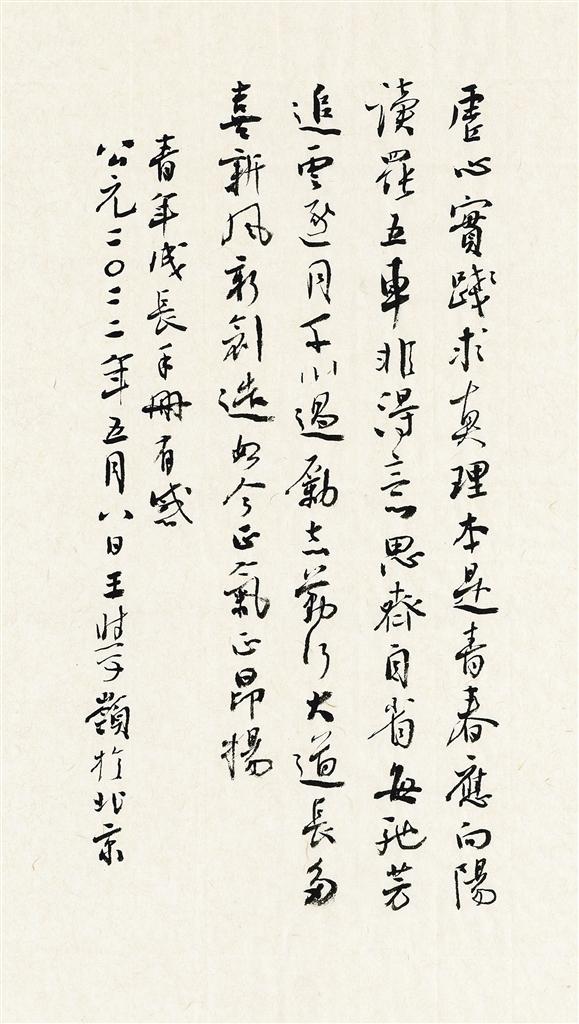 虛心實踐求真理本是青春應向陽
讀罷五車非得意思齊自省每芳
追雲逐月千川過勵志勤行大道長多
喜新風新創造如今正氣正昂揚
青年成長手冊有感
公元二〇二二年五月八日王曉嶺於北京